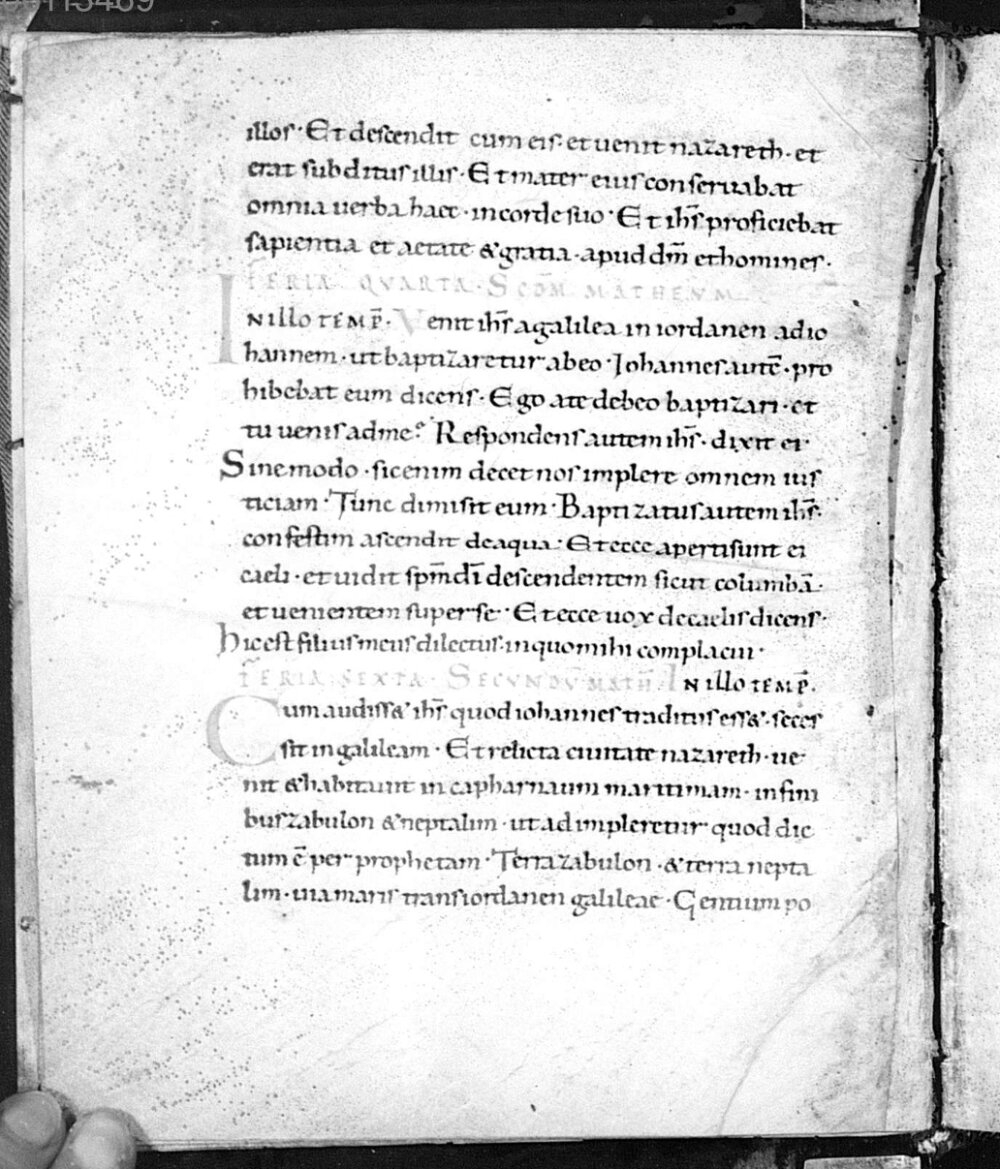 illos· Et descendit cum eis· et uenit nazareth· et
erat subditus illis· Et mater eius conseruabat
omnia uerba haec· in corde suo· Et ih̅s proficiebat
sapientia et aetate & gratia· apud dm̅ et homines·
FERIA QVARTA· SCD̅M MATHEVM
IN illo TEMP̅· Venit ih̅s a galilea in iordanen ad io
hannem· ut baptizaretur ab eo· Iohannes aute̅· pro
hibebat eum dicens· Ego a te debeo baptizari· et
tu uenis ad me? Respondens autem ih̅s· dixit ei·
Sine modo· sic enim decet nos implere omnem ius
ticiam· Tunc dimisit eum· Baptizatus autem ih̅s·
confestim ascendit de aqua· Et ecce aperti sunt ei
caeli· et uidit spm̅ di̅ descendentem sicut columba̅·
et uenientem super se· Et ecce uox de caelis dicens·
hic est filius meus dilectus· in quo mihi complacui·
FERIA SEXTA· SECVNDV̅ MATH̅· IN illo TEMP̅·
Cum audiss& ih̅s quod iohannes traditus ess&· seces
sit in galileam· Et relicta ciuitate nazareth· ue
nit & habitauit in capharnaum maritimam· in fini
bus zabulon & neptalim· ut adimpleretur quod dic
tum e̅ per prophetam· Terra zabulon· & terra nepta
lim· uia maris trans iordanen galileae· Gentium po